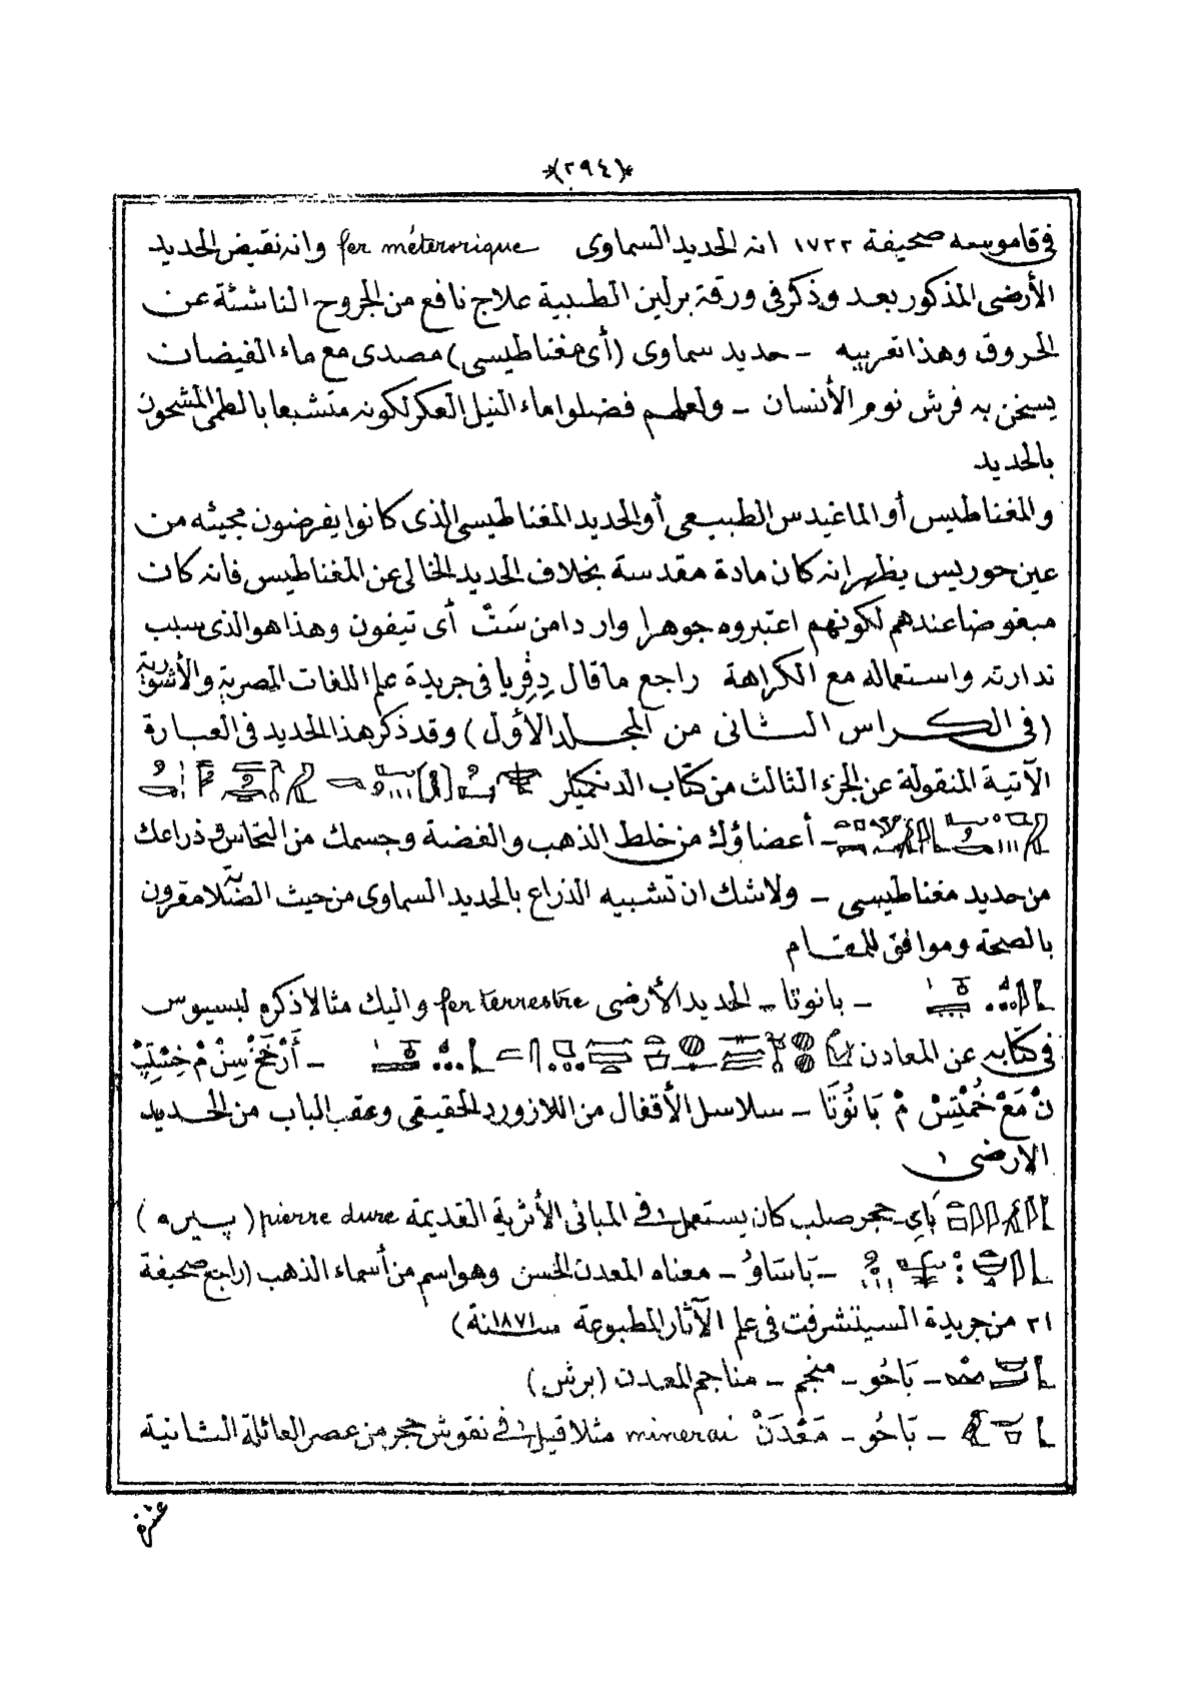 *(٢٩٤)*
فى قاموسه صحيفة ١٧٢٢ انه الحديد السماوى fer méterorique وانه نقيض الحديد
الأرضى المذكور بعد وذكر فى ورقة برلين الطبية علاج نافع من الجروح الناشئة عن
الحروق وهذا تعريبه - حديد سماوى (أى مغناطيسى) مصدى مع ماء الفيضات
يسخن به فرش نوم الأنسان - ولعلهم فضلوا ماء النيل العكر لكونه متشبعا بالطمى المشحون
بالحديد
والمغناطيس أو الماغيدس الطبيعى أو الحديد المغناطيسى الذى كانوا يفرضون مجيئه من
عين حوريس يظهر انه كان مادة مقدسة بخلاف الحديد الخالى عن المغناطيس فانه كان
مبغوضا عندهم لكونهم اعتبروه جوهرا واردا من سَتْ أى تيفون وهذا هو الذى سبب
ندارته واستعماله مع الكراهة راجع ما قال دِڤِريا فى جريدة علم اللغات المصرية والأشورية
(فى الكراس الثانى من المجلد الأول) وقد ذكر هذا الحديد فى العبارة
الآتية المنقولة عن الجزء الثالث من كتاب الدنكميلر
- أعضاؤك من خلط الذهب والفضة وجسمك من النحاس وذراعك
من حديد مغناطيسى - ولا شك ان تشبيه الذراع بالحديد السماوى من حيث الصَّلابة مقرون
بالصحة وموافق للمقام
- بانوتا - الحديد الأرضى fer terrestre واليك مثالا ذكره لبسيوس
فى كتابه عن المعادن - أَرْخَخْ سِنْ مْ خِنْتِبْ
نْ مَعْ خُمْتِسْ مْ بَانُوتَا - سلاسل الأقفال من اللازورد الحقيقى وعقب الباب من الحديد
الارضى ١
بَاىِ - حجر صلب كان يستعمل فى المبانى الأثرية القديمة pierre dure (پيره)
- بَاسَاوُ - معناه المعدن الحسن وهو اسم من أسماء الذهب (راجع صحيفة
٢١ من جريدة السيتشرفت فى علم الآثار المطبوعة سنة ١٨٧١)
- بَاحُو - منجم - مناجم المعدن (برش)
- بَاحُو - مَعْدَنْ minerai مثلا قيل فى نقوش حجر من عصر العائلة الثانية
عشرة